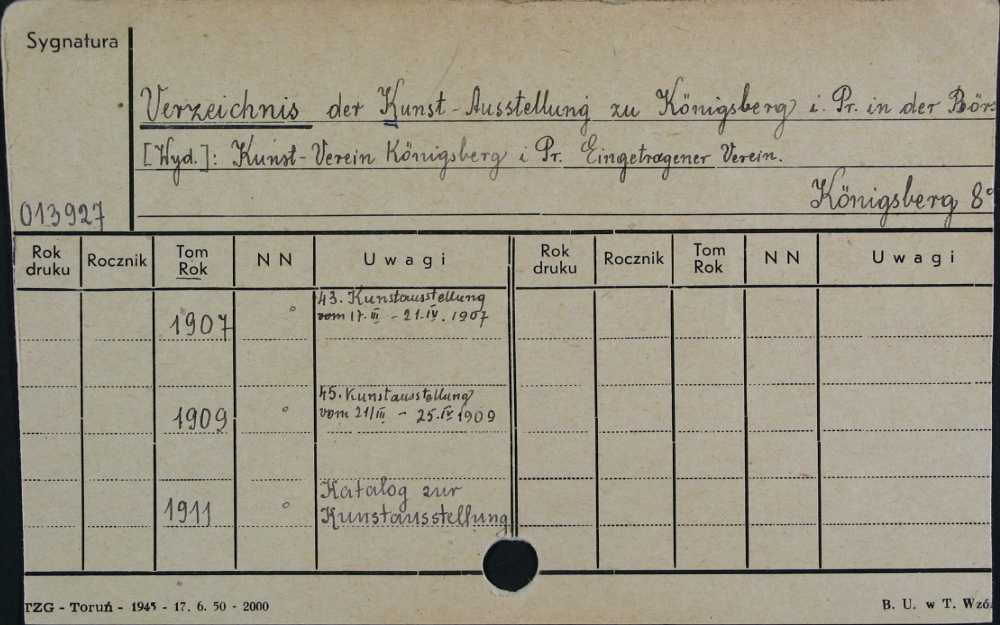 Sygnatura
Verzeichnis der Kunst-Ausstellung zu Königsberg i. Pr. in der Börs
[Wyd.]: Kunst-Verein Königsberg i Pr. Eingetragener Verein.
Königsberg 8°
013927
Rok druku Rocznik Tom Rok NN Uwagi Rok druku Rocznik Tom Rok NN Uwagi
43. Kunstausstellung
1907 vom 17. III - 21. IV. 1907
45. Kunstausstellung
1909 vom 21/III - 25. IV 1909
Katalog zur
1911 Kunstausstellung
TZG - Toruń - 1945 - 17. 6. 50 - 2000 B. U. w T. Wzó